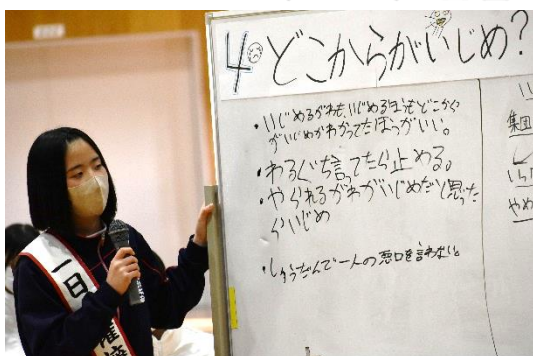 4 どこからがいじめ?
・いじめるがわも、いじめるほうもどこから
がいじめかわかってたほうがいい。
・わるぐち言ってたら止める。
・やられるがわがいじめだと思った
らいじめ
・しゅうだんで一人の悪口を言わない。
集団
やめ
一日
権擁